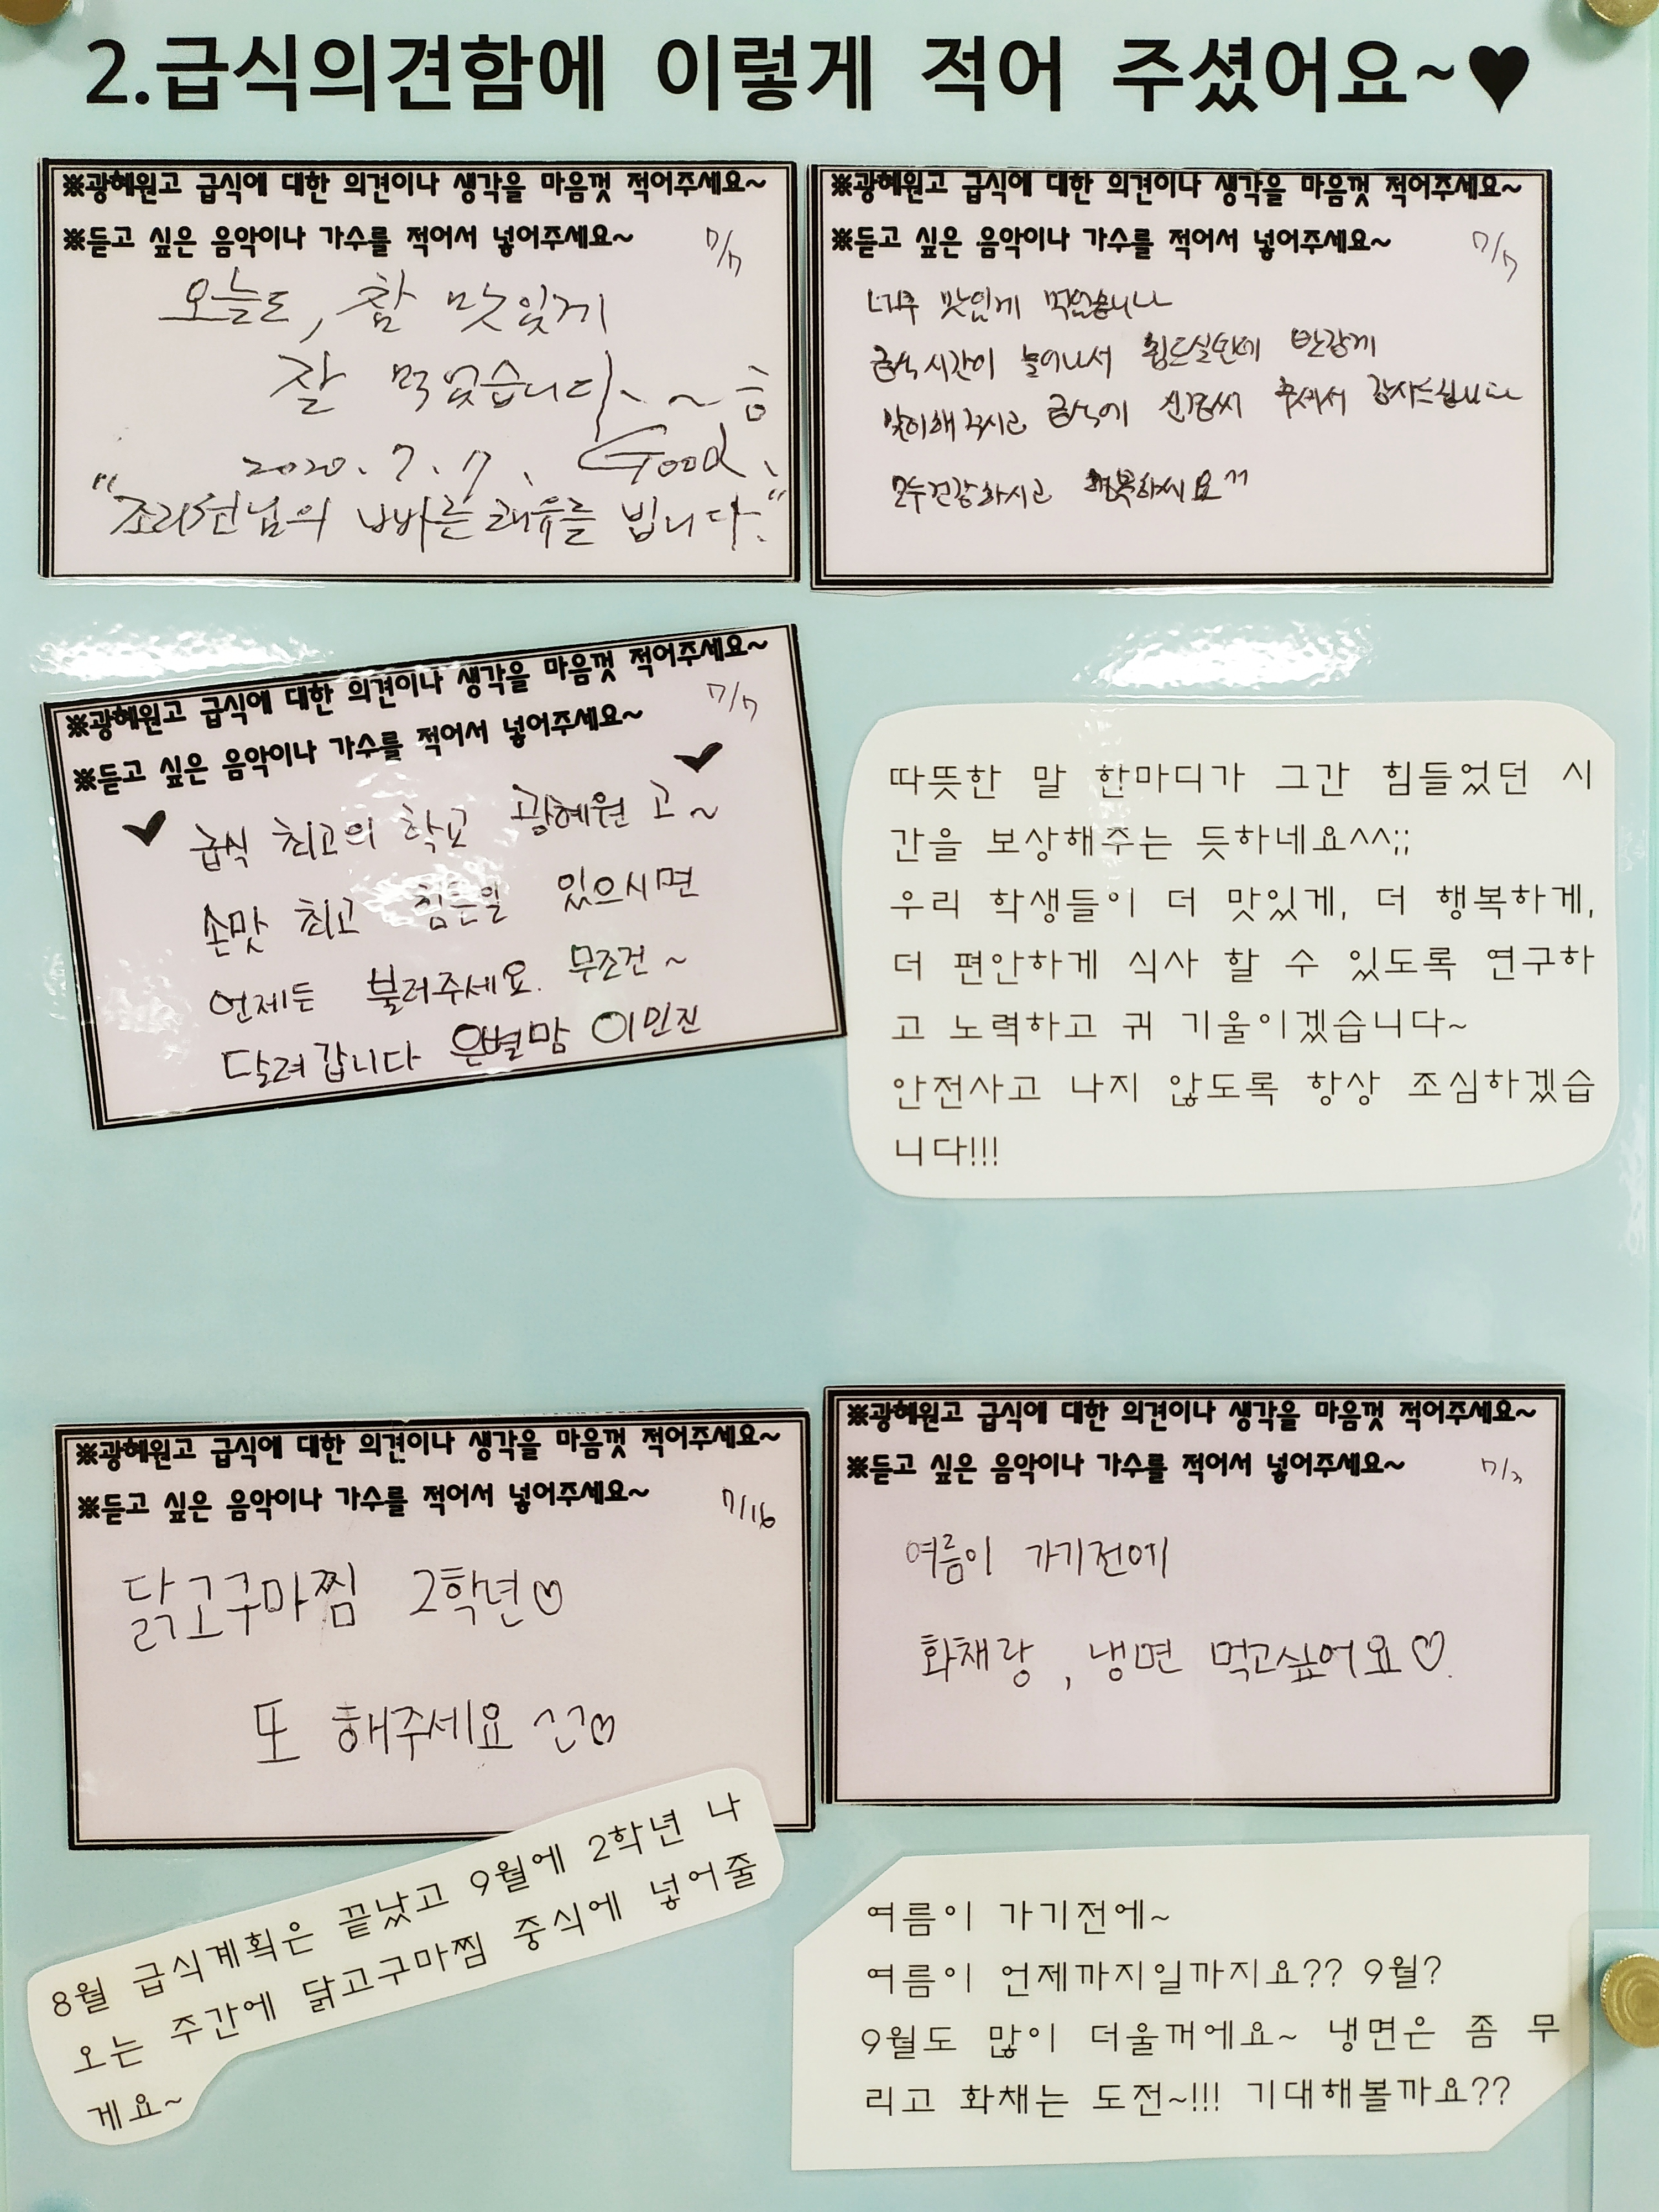 2.급식의견함에 이렇게 적어 주셨어요~♥
※광혜원고 급식에 대한 의견이나 생각을 마음껏 적어주세요~
※듣고 싶은 음악이나 가수를 적어서 넣어주세요~ 7/7
오늘도, 참 맛있게
잘 먹었습니다.~
2020. 7. 7. Good.
"조리원님의 빠른 쾌유를 빕니다."
※광혜원고 급식에 대한 의견이나 생각을 마음껏 적어주세요~
※듣고 싶은 음악이나 가수를 적어서 넣어주세요~ 7/7
너무 맛있게 먹었습니다
급식시간이 늘어나서 힘드실텐데 반갑게
맞이해주시고 급식에 신경써 주셔서 감사드립니다
모두건강하시고 행복하세요^^
※광혜원고 급식에 대한 의견이나 생각을 마음껏 적어주세요~
※듣고 싶은 음악이나 가수를 적어서 넣어주세요~ 7/7
급식 최고의 학교 광혜원 고~
손맛 최고 힘든일 있으시면
언제든 불러주세요. 무조건~
달려갑니다 은별맘 이민진
따뜻한 말 한마디가 그간 힘들었던 시
간을 보상해주는 듯하네요^^;;
우리 학생들이 더 맛있게, 더 행복하게,
더 편안하게 식사 할 수 있도록 연구하
고 노력하고 귀 기울이겠습니다~
안전사고 나지 않도록 항상 조심하겠습
니다!!!
※광혜원고 급식에 대한 의견이나 생각을 마음껏 적어주세요~
※듣고 싶은 음악이나 가수를 적어서 넣어주세요~ 7/16
닭고구마찜 2학년♡
또 해주세요 ^^♡
※광혜원고 급식에 대한 의견이나 생각을 마음껏 적어주세요~
※듣고 싶은 음악이나 가수를 적어서 넣어주세요~
여름이 가기전에
화채랑, 냉면 먹고싶어요♡.
8월 급식계획은 끝났고 9월에 2학년 나
오는 주간에 닭고구마찜 중식에 넣어줄
게요~
여름이 가기전에~
여름이 언제까지일까지요?? 9월?
9월도 많이 더울꺼에요~ 냉면은 좀 무
리고 화채는 도전~!!! 기대해볼까요??